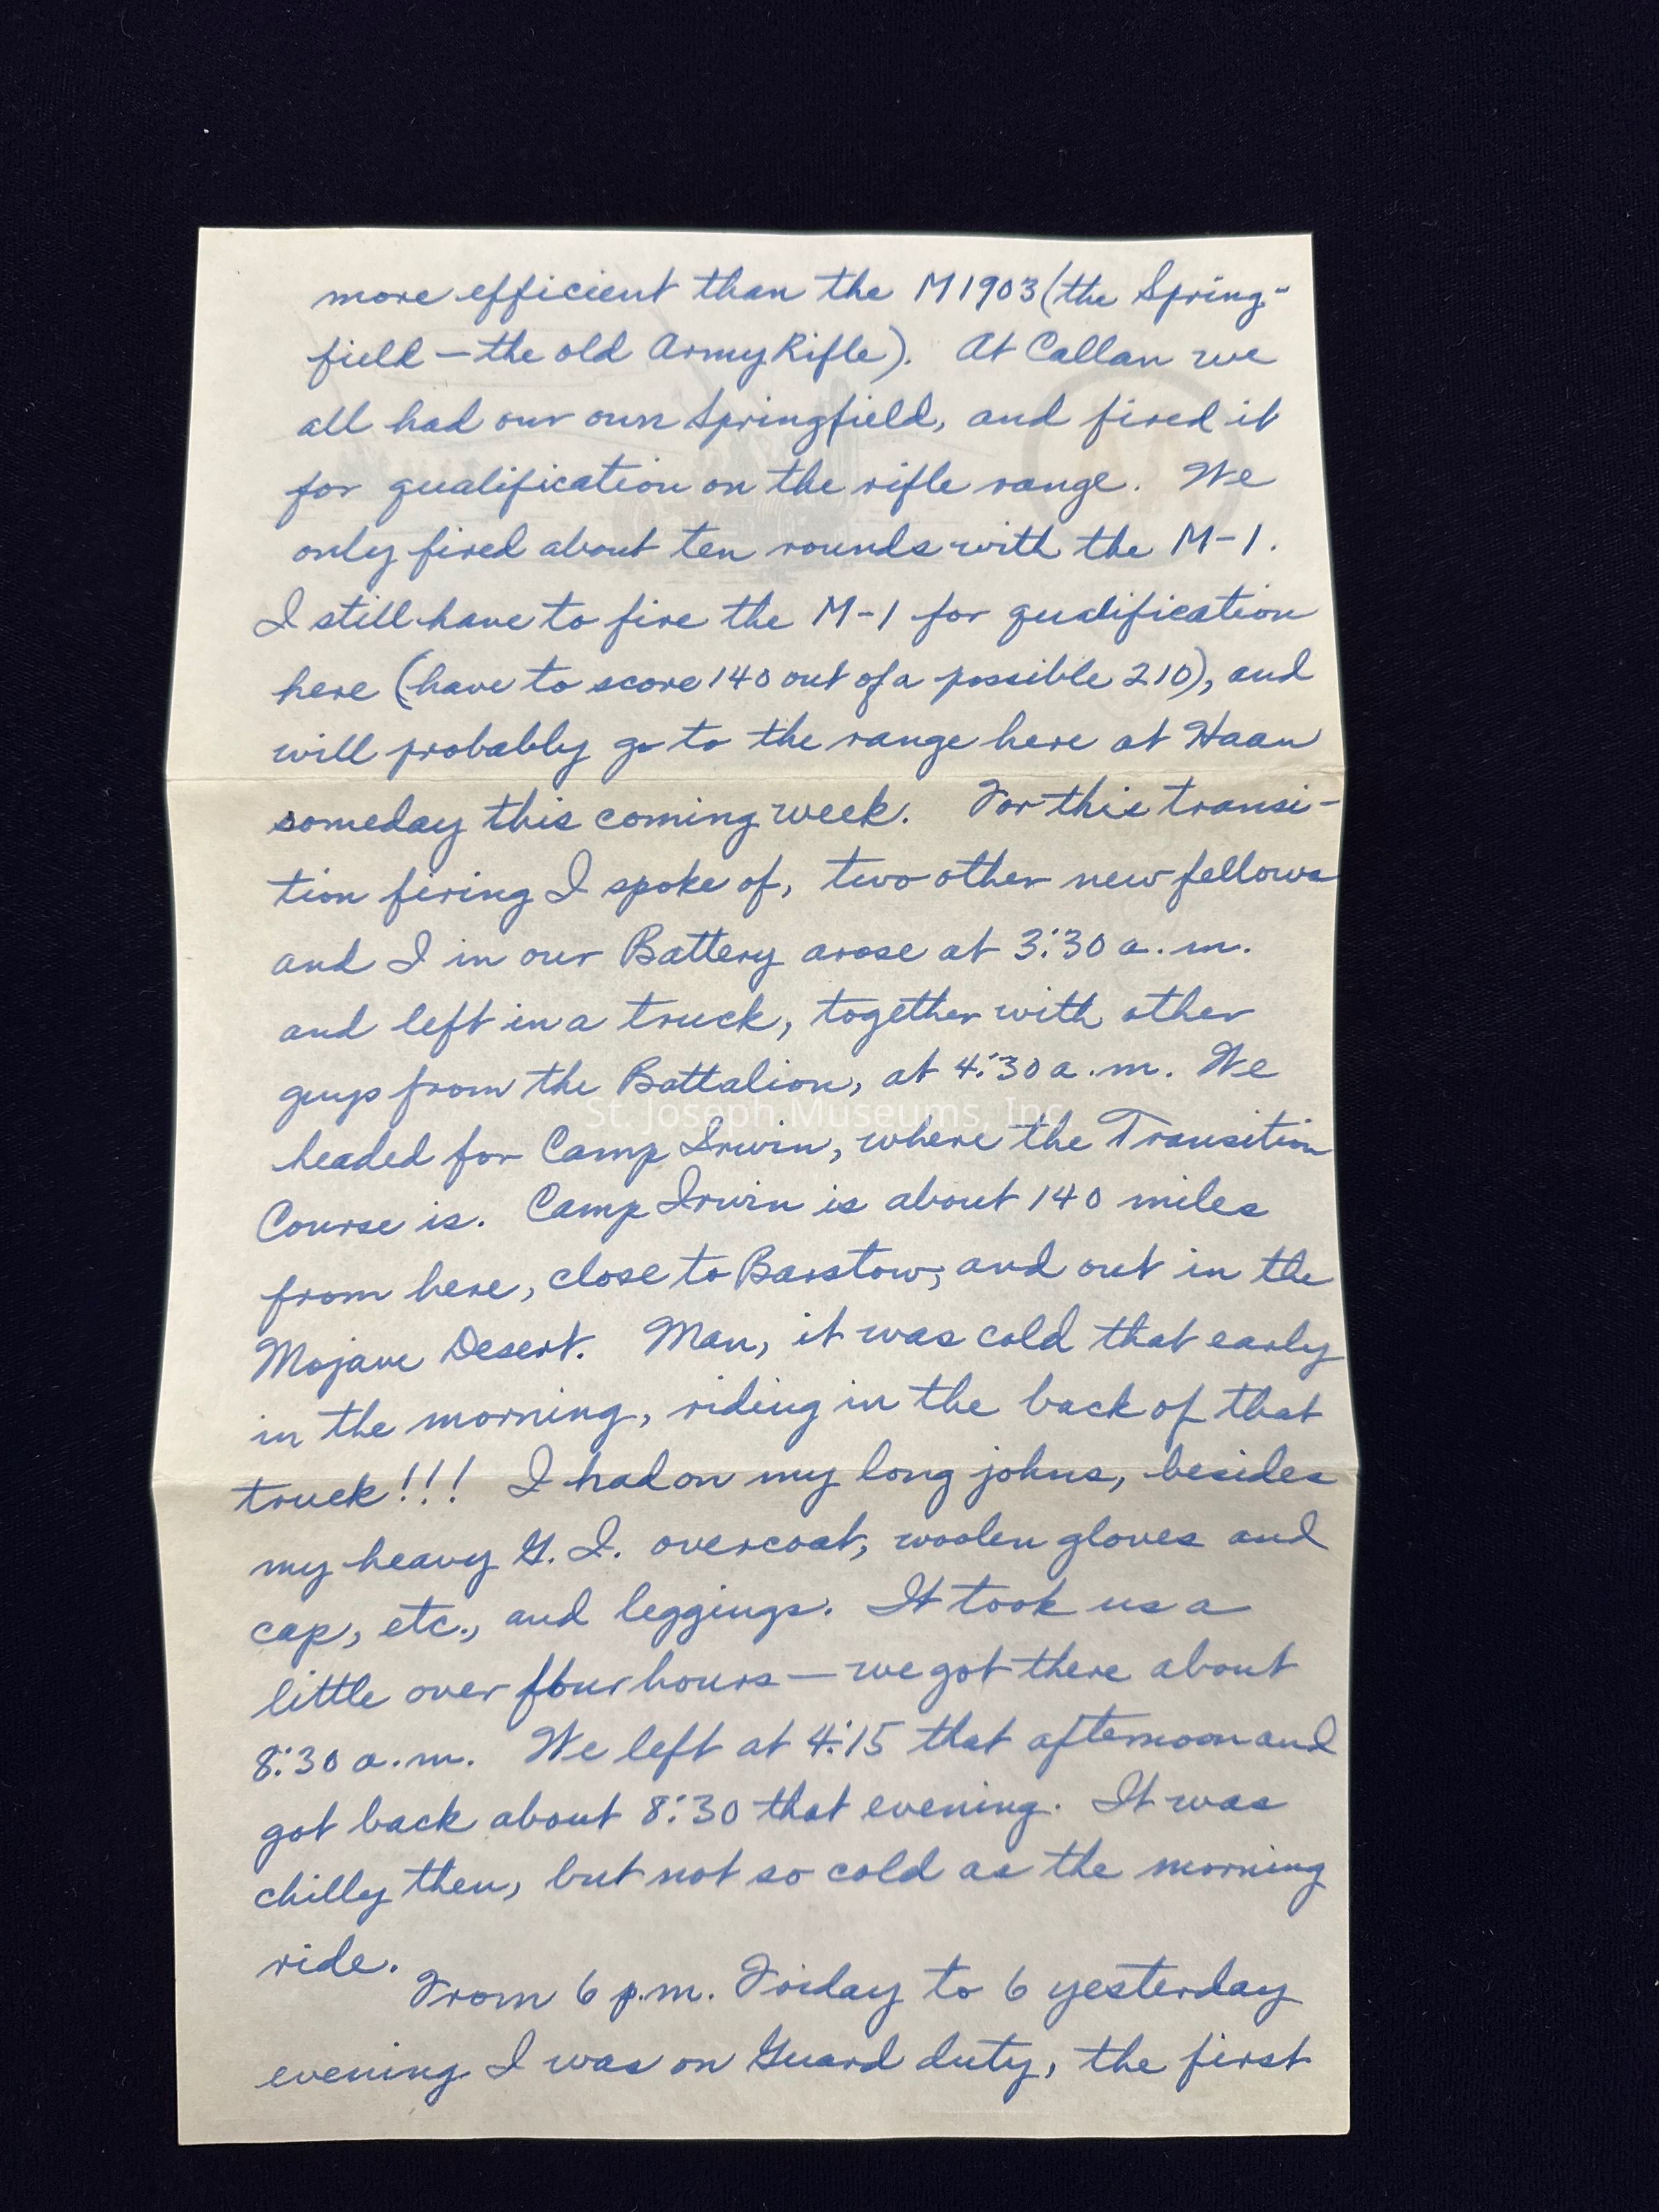 more efficient than the M1903 (the Spring-
field — the old Army Rifle). At Callan we
all had our own Springfield, and fired it
for qualification on the rifle range. We
only fired about ten rounds with the M-1.
I still have to fire the M-1 for qualification
here (have to score 140 out of a possible 210), and
will probably go to the range here at Haan
someday this coming week. For this transi-
tion firing I spoke of, two other new fellows
and I in our Battery arose at 3:30 a.m.
and left in a truck, together with other
guys from the Battalion, at 4:30 a.m. We
St. Joseph Museums, Inc.
headed for Camp Irwin, where the Transition
Course is. Camp Irwin is about 140 miles
from here, close to Barstow, and out in the
Mojave Desert. Man, it was cold that early
in the morning, riding in the back of that
truck!!! I had on my long johns, besides
my heavy G.I. overcoat, woolen gloves and
cap, etc., and leggings. It took us a
little over four hours — we got there about
8:30 a.m. We left at 4:15 that afternoon and
got back about 8:30 that evening. It was
chilly then, but not so cold as the morning
ride.
From 6 p.m. Friday to 6 yesterday
evening I was on Guard duty, the first